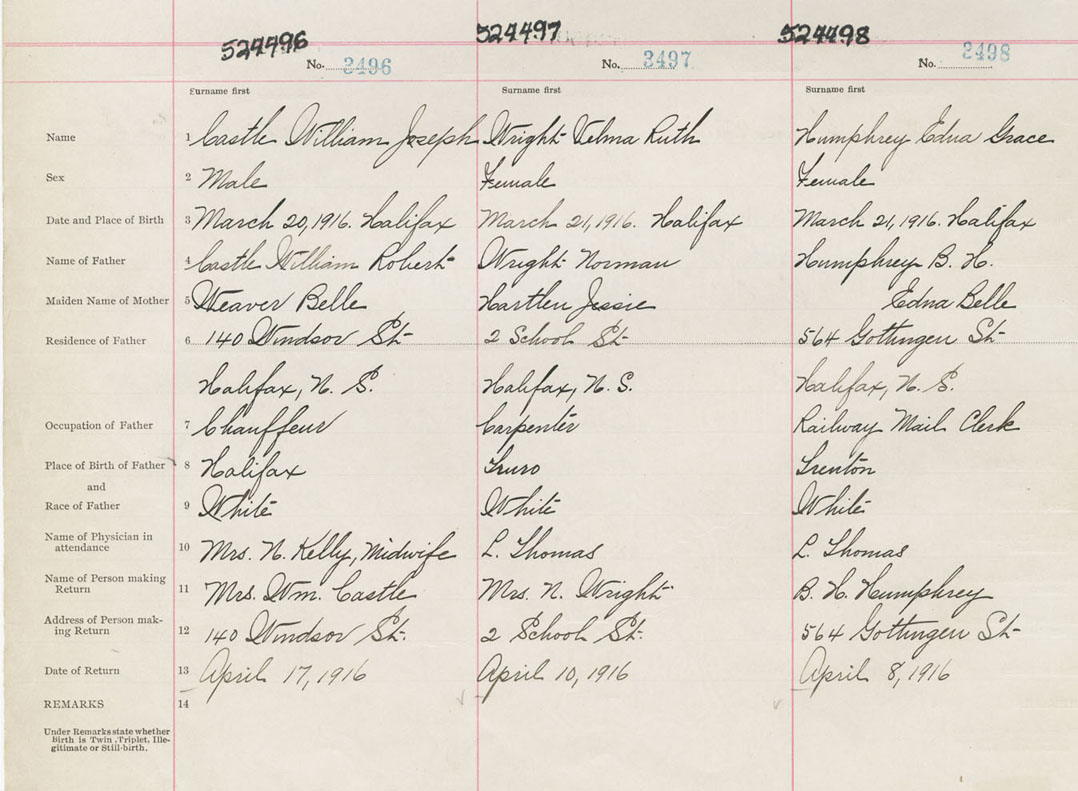 524496 524497 524498
No. 3496 No. 3497 No. 3498
Surname first Surname first Surname first
Name 1 Castle William Joseph Wright Velma Ruth Humphrey Edna Grace
Sex 2 Male Female Female
Date and Place of Birth 3 March 20, 1916. Halifax March 21, 1916. Halifax March 21, 1916. Halifax
Name of Father 4 Castle William Robert Wright Norman Humphrey B. H.
Maiden Name of Mother 5 Weaver Belle Hartlen Jessie Edna Belle
Residence of Father 6 140 Windsor St. 2 School St. 564 Gottingen St.
Halifax, N. S. Halifax, N. S. Halifax, N. S.
Occupation of Father 7 Chauffeur Carpenter Railway Mail Clerk
Place of Birth of Father 8 Halifax Truro Trenton
and
Race of Father 9 White White White
Name of Physician in
attendance 10 Mrs. N. Kelly, Midwife L. Thomas L. Thomas
Name of Person making
Return 11 Mrs. Wm. Castle Mrs. N. Wright B. H. Humphrey
Address of Person mak-
ing Return 12 140 Windsor St. 2 School St. 564 Gottingen St.
Date of Return 13 April 17, 1916 April 10, 1916 April 8, 1916
REMARKS 14
Under Remarks state whether
Birth is Twin, Triplet, Ille-
gitimate or Still-birth.